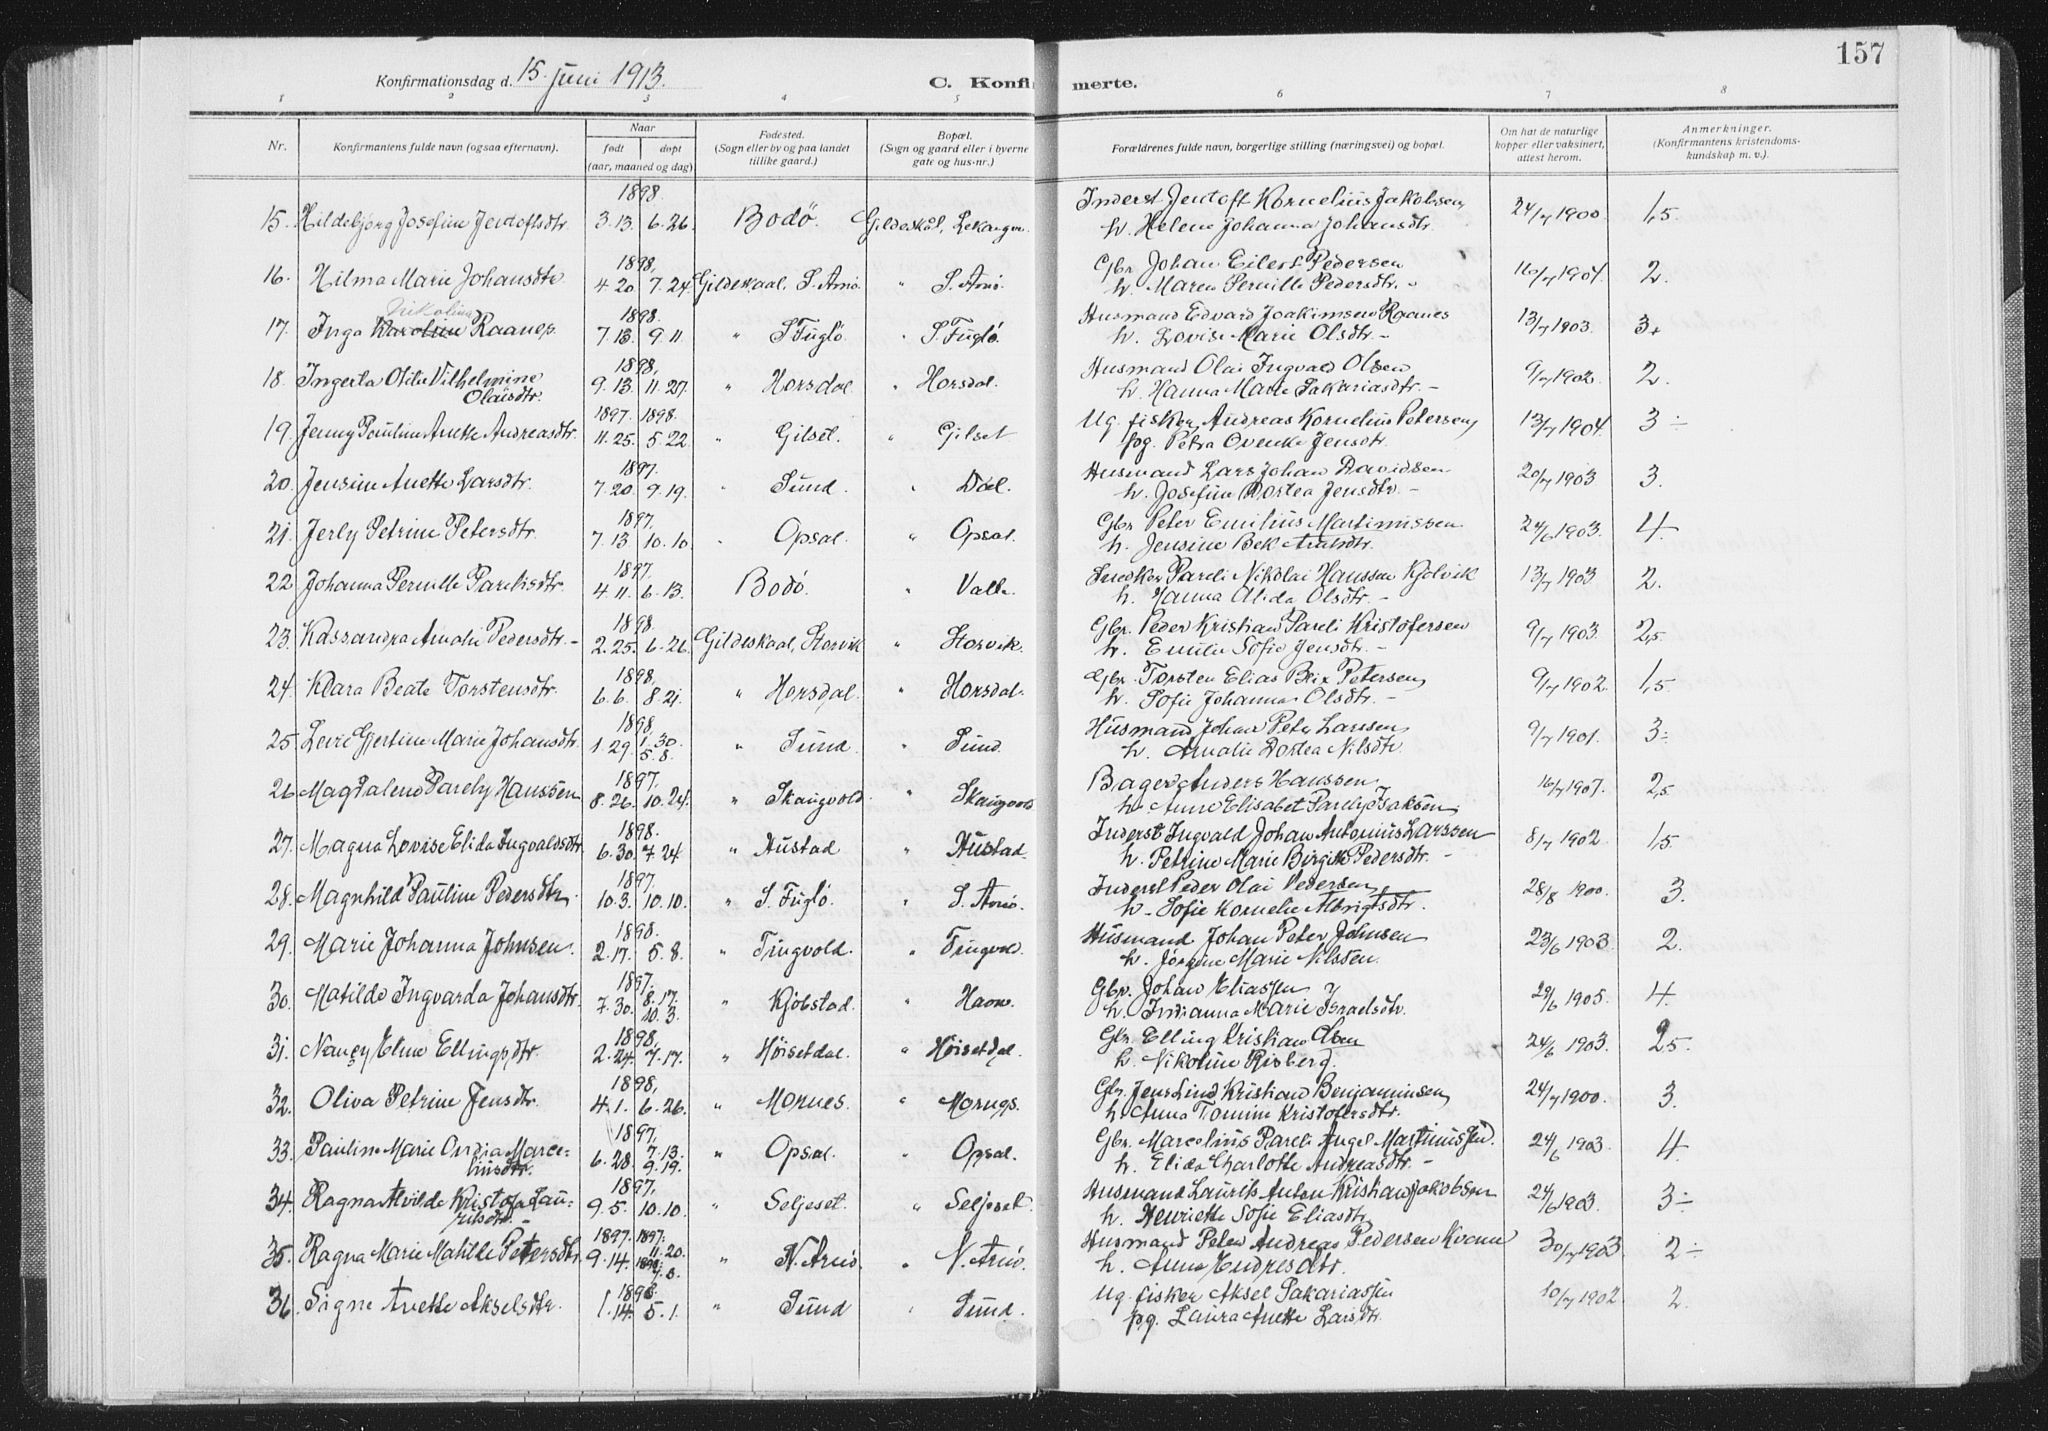 157
Konfirmationsdag d. 15. juni 1913.
C. Konfirmerte.
1 2 3 4 5 6 7 8
Nr. Konfirmantens fulde navn (ogsaa efternavn). Naar født døpt (aar, maaned og dag) Fødested. (Sogn eller by og paa landet tillike gaard.) Bopæl. (Sogn og gaard eller i byerne gate og hus-nr.) Forældrenes fulde navn, borgerlige stilling (næringsvei) og bopæl. Om hat de naturlige kopper eller vaksinert, attest herom. Anmerkninger. (Konfirmantens kristendomskundskap m. v.).
1898.
15. Hildebjørg Josefine Jentoftsdtr. 3.13. 6.26. Bodö. Gildeskål, Lekangen. Inderst Jentoft Kornelius Jakobsen, 24/7 1900. 1,5.
h. Helene Johanna Johansdtr.
1898,
16. Hilma Marie Johansdtr. 4.20 7.24. Gildeskaal, S. Arnö. " S. Arnö. Gbr. Johan Eilert Pedersen 16/7 1904. 2.
h. Maren Pernille Pedersdtr. -
Nikolina 1898.
17. Inga Karoline Raanes. 7.13. 9.11. " S Fuglö. " S. Fuglö. Husmand Edvard Joakimsen Raanes 13/7 1903. 3+
h. Lovise Marie Olsdtr. -
1898,
18. Ingerta Otilie Vilhelmine 9.13. 11.27. " Horsdal " Horsdal. Husmand Olai Ingvald Olsen 9/7 1902. 2.
Olaisdtr. h. Hanna Marie Sakariasdtr. -
1897. 1898.
19. Jenny Pauline Anette Andreasdtr. 11.25. 5.22. " Gilset. " Gilset Ug. fisker Andreas Kornelius Petersen, 13/7 1904. 3 ÷
pg. Petra Ovenke Jensdtr.
1897.
20. Jensine Anette Larsdtr. 7.20. 9.19. " Sund. " Dal. Husmand Lars Johan Davidsen 20/7 1903 3.
h. Josefine Dortea Jensdtr. -
1897,
21. Jerly Petrine Petersdtr. 7.13 10.10. " Opsal. " Opsal. Gbr. Peter Emilius Martinussen 24/6 1903. 4.
h. Jensine Bek
1897.
22. Johanna Pernille Parelisdtr. 4.11. 6.13. Bodö. " Valle. Snedker Pareli Nikolai Hanssen Kjölvik 13/7 1903 2.
h. Hanna Alida Olsdtr. -
1898.
23. Kassandra Amalie Pedersdtr. - 2.25. 6.26. Gildeskaal, Storvik " Storvik. Gbr. Peder Kristian Pareli Kristofersen 9/7 1903. 2,5.
h. Emilie Sofie Jensdtr. -
1898,
24. Klara Beate Torstensdtr. 6.6. 8.21. " Horsdal. " Horsdal. Gbr. Torsten Elias Blix Petersen, 9/7 1902. 1,5.
h. Sofie Johanna Olsdtr. -
1898,
25. Gjertine Marie Johansdtr. 1.29. 1.30. 5.8. " Sund. " Sund. Husmand Johan Peter Larsen 9/7 1901. 3÷
h. Amalie Dortea Nilsdtr.
1897,
26. Magdalena Parely Hanssen 8.26. 10.24. " Skaugvold. " Skaugvold Bager Anders Hanssen 16/7 1907. 2,5.
h. Anne Elisabet Parely Isaksen,
1898.
27. Magna Lovise Elida Ingvaldsdtr. 6.30. 7.24 " Hustad " Hustad. Inderst Ingvald Johan Antonius Larssen 8/7 1902 1,5.
h. Petrine Marie Birgitte Pedersdtr. -
1897.
28. Magnhild Pauline Pedersdtr. 10.3. 10.10. " S. Fuglö. " S. Arnö. Inderst Peder Olai Pedersen 28/8 1900. 3.
h. Sofie Kornelie Albrigtsdtr.
1898.
29. Marie Johanna Johnsen. 2.17. 5.8. " Tingvold. " Tingvold. Husmand Johan Peter Johnsen 23/6 1903. 2.
h. Jörgine Marie Nilssen.
1897.
30. Matilde Ingvarda Johansdtr. 7.30. 8.17. 10.3. " Kjöbstad. " Gbr. Johan Eliassen 29/6 1905. 4.
h. Indianna Marie Israelsdtr.
1898,
31. Nancy Eline Ellingsdtr. 2.24. 7.17. " Höisetdal. " Höisetdal. Gbr. Elling Kristian Olsen 24/6 1903. 2,5.
h. Nikoline Risberg.
1898,
32. Oliva Petrine Jensdtr. 4.1. 6.26. " Mornes. " Gbr. Jens Lind Kristian Benjaminsen, 24/7 1900. 3.
h. Anna Tomine Kristofersdtr.
1897,
33. Pauline Marie Ovidia Marce- 6.28. 7.13. 9.19. " Opsal. " Opsal. Gbr. Marcelius Pareli Angel Martinussen. 24/6 1903. 4.
liusdtr. h. Elida Charlotte Andreasdtr. -
1897,
34. Ragna Alvilde Kristofa Lau- 9.5. 10.10. " Seljeset. " Seljeset. Husmand Laurits Anton Kristian Jakobsen 24/6 1903. 3÷
ritsdtr. - h. Henriette Sofie Eliasdtr.
1897. 1897.
35. Ragna Marie Matilde Petersdtr. 9.14. 11.20. 1898, " N. Arnö. " N. Arnö. Husmand Peter Andreas Pedersen Kvann 30/7 1903. 2 ÷
h. Anna Endresdtr.
1898.
36. Signe Anette Akselsdtr. 1.14. 5.1. " Sund " Sund. Ug. fisker Aksel Sakariassen 10/7 1902. 2.
pg. Laura Anette Larsdtr.